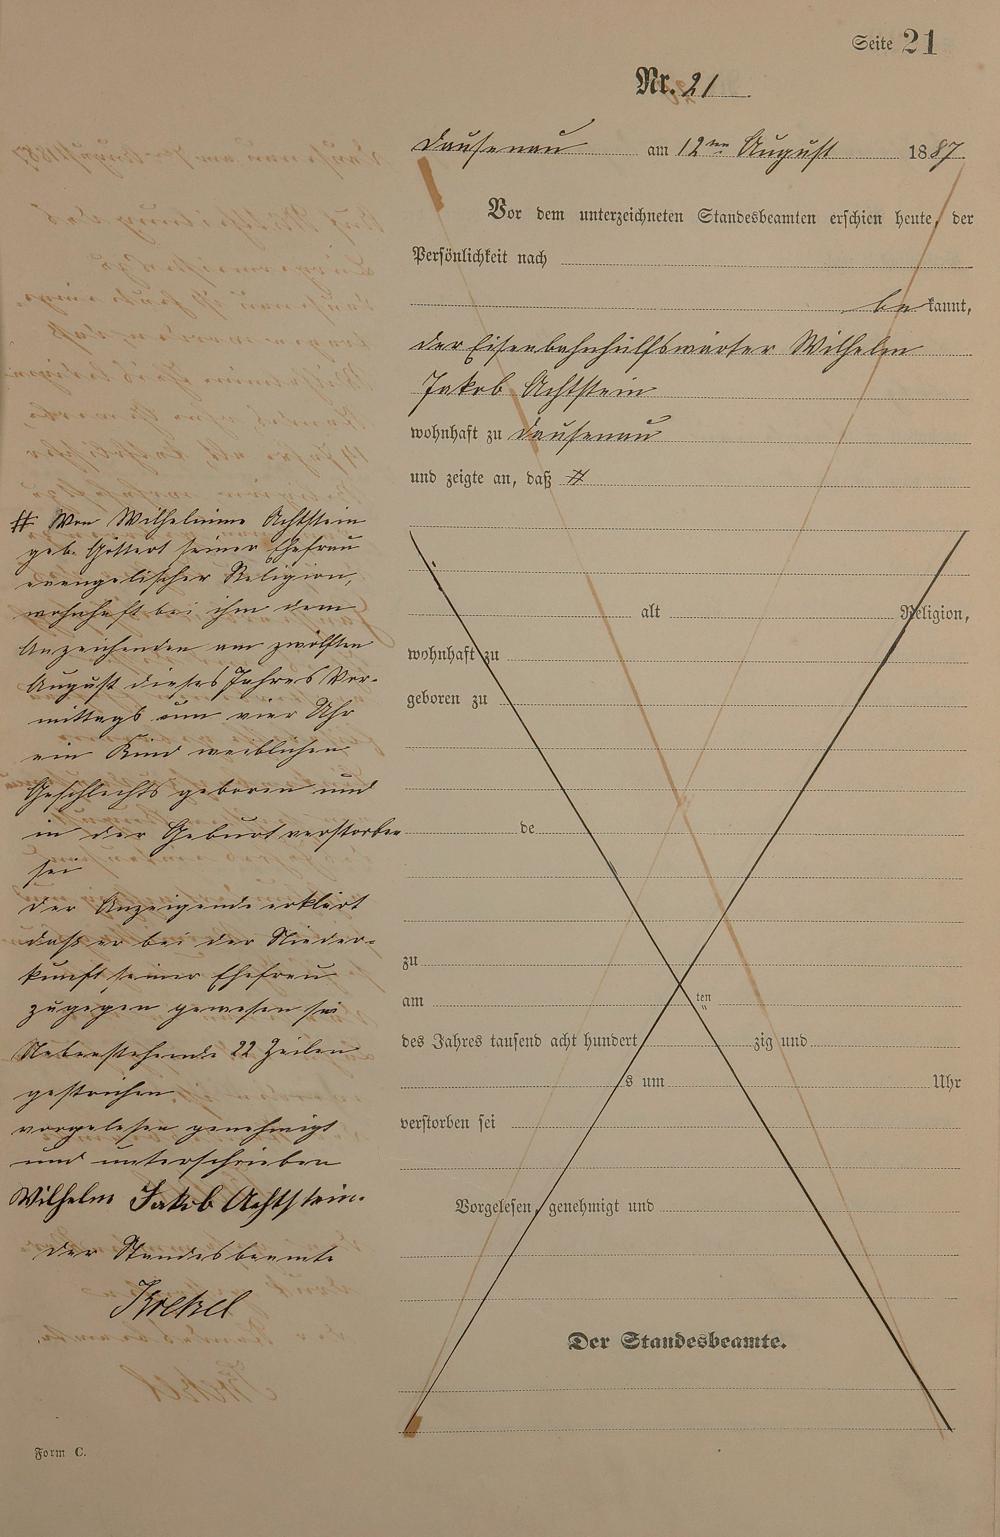 Seite 21
Nr. 21
Dausenau am 12ten August 1887
Vor dem unterzeichneten Standesbeamten erschien heute, der
Persönlichkeit nach
bekannt,
der Eisenbahnhülfswärter Wilhelm
Jakob Achtstein
wohnhaft zu Dausenau
und zeigte an, daß #
# Von Wilhelmine Achtstein
geb. Göttert seiner Ehefrau
evangelischer Religion,
wohnhaft bei ihm dem
Anzeichenden am zwölften
August dieses Jahres Vor-
mittags um vier Uhr
ein Kind weiblichen
Geschlechts geboren und
in der Geburt verstorben
sei
der Anzeigende erklärt
daß er bei der Nieder-
kunft seiner Ehefrau
zugegen gewesen sei
Nebenstehende 22 Zeilen
gestrichen
vorgelesen genehmigt
und unterschrieben
Wilhelm Jakob Achtstein.
der Standesbeamte
alt Religion,
wohnhaft zu
geboren zu
de
zu
am ten
des Jahres tausend acht hundert zig und
s um Uhr
verstorben sei
Vorgelesen, genehmigt und
Der Standesbeamte.
Form C.